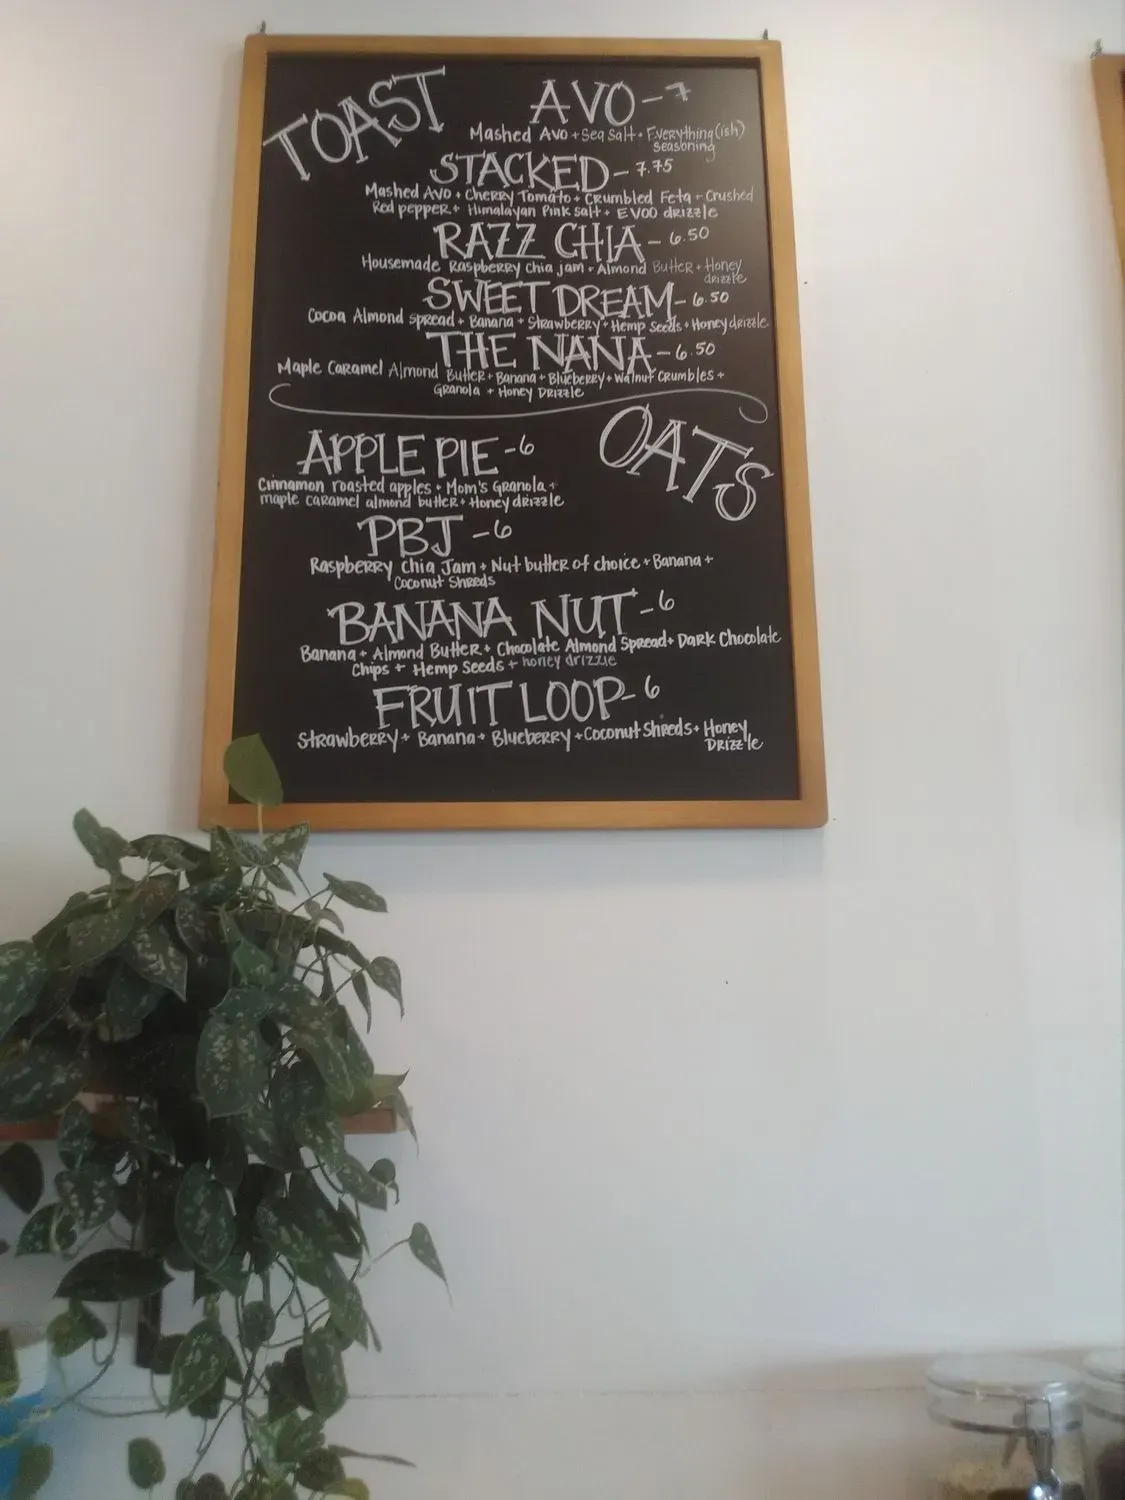 TOAST
AVO - 7
Mashed Avo + Sea Salt + Everything(ish)
seasoning
STACKED - 7.75
Mashed Avo + Cherry Tomato + Crumbled Feta + Crushed
Red pepper + Himalayan Pink Salt + EVOO drizzle
RAZZ CHIA - 6.50
Housemade Raspberry Chia jam + Almond Butter + Honey
drizzle
SWEET DREAM - 6.50
Cocoa Almond spread + Banana + Strawberry + Hemp Seeds + Honey drizzle
THE NANA - 6.50
Maple Caramel Almond Butter + Banana + Blueberry + Walnut Crumbles +
Granola + Honey Drizzle
OATS
APPLE PIE - 6
Cinnamon roasted apples + Mom's Granola +
maple caramel almond butter + Honey drizzle
PBJ - 6
Raspberry Chia Jam + Nut butter of choice + Banana +
Coconut Shreds
BANANA NUT - 6
Banana + Almond Butter + Chocolate Almond Spread + Dark Chocolate
Chips + Hemp Seeds + honey drizzle
FRUIT LOOP - 6
Strawberry + Banana + Blueberry + Coconut Shreds + Honey
Drizzle